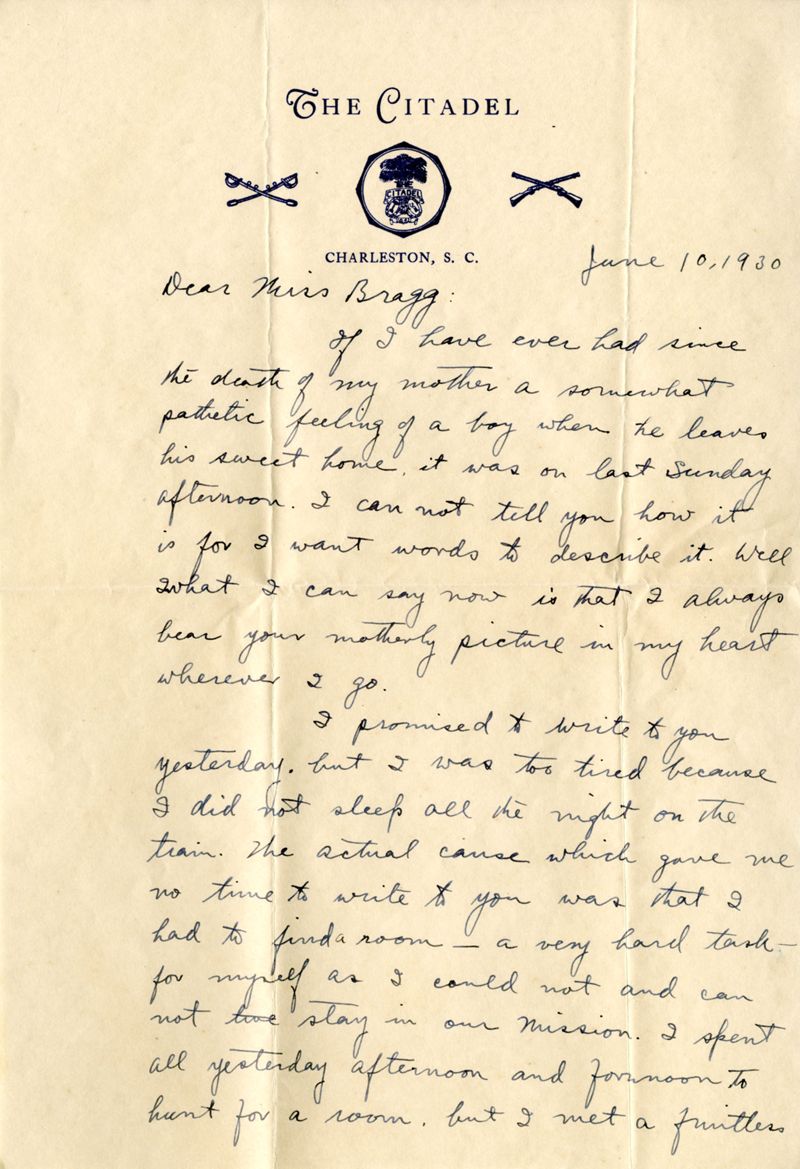 THE CITADEL
THE
CITADEL
CHARLESTON, S. C.
June 10, 1930
Dear Miss Bragg:
If I have ever had since
the death of my mother a somewhat
pathetic feeling of a boy when he leaves
his sweet home, it was on last Sunday
afternoon. I can not tell you how it
is for I want words to describe it. Well
what I can say now is that I always
bear your motherly picture in my heart
wherever I go.
I promised to write to you
yesterday, but I was too tired because
I did not sleep all the night on the
train. The actual cause which gave me
no time to write to you was that I
had to find a room — a very hard task —
for myself as I could not and can
not live stay in our Mission. I spent
all yesterday afternoon and forunoon to
hunt for a room, but I met a fruitless